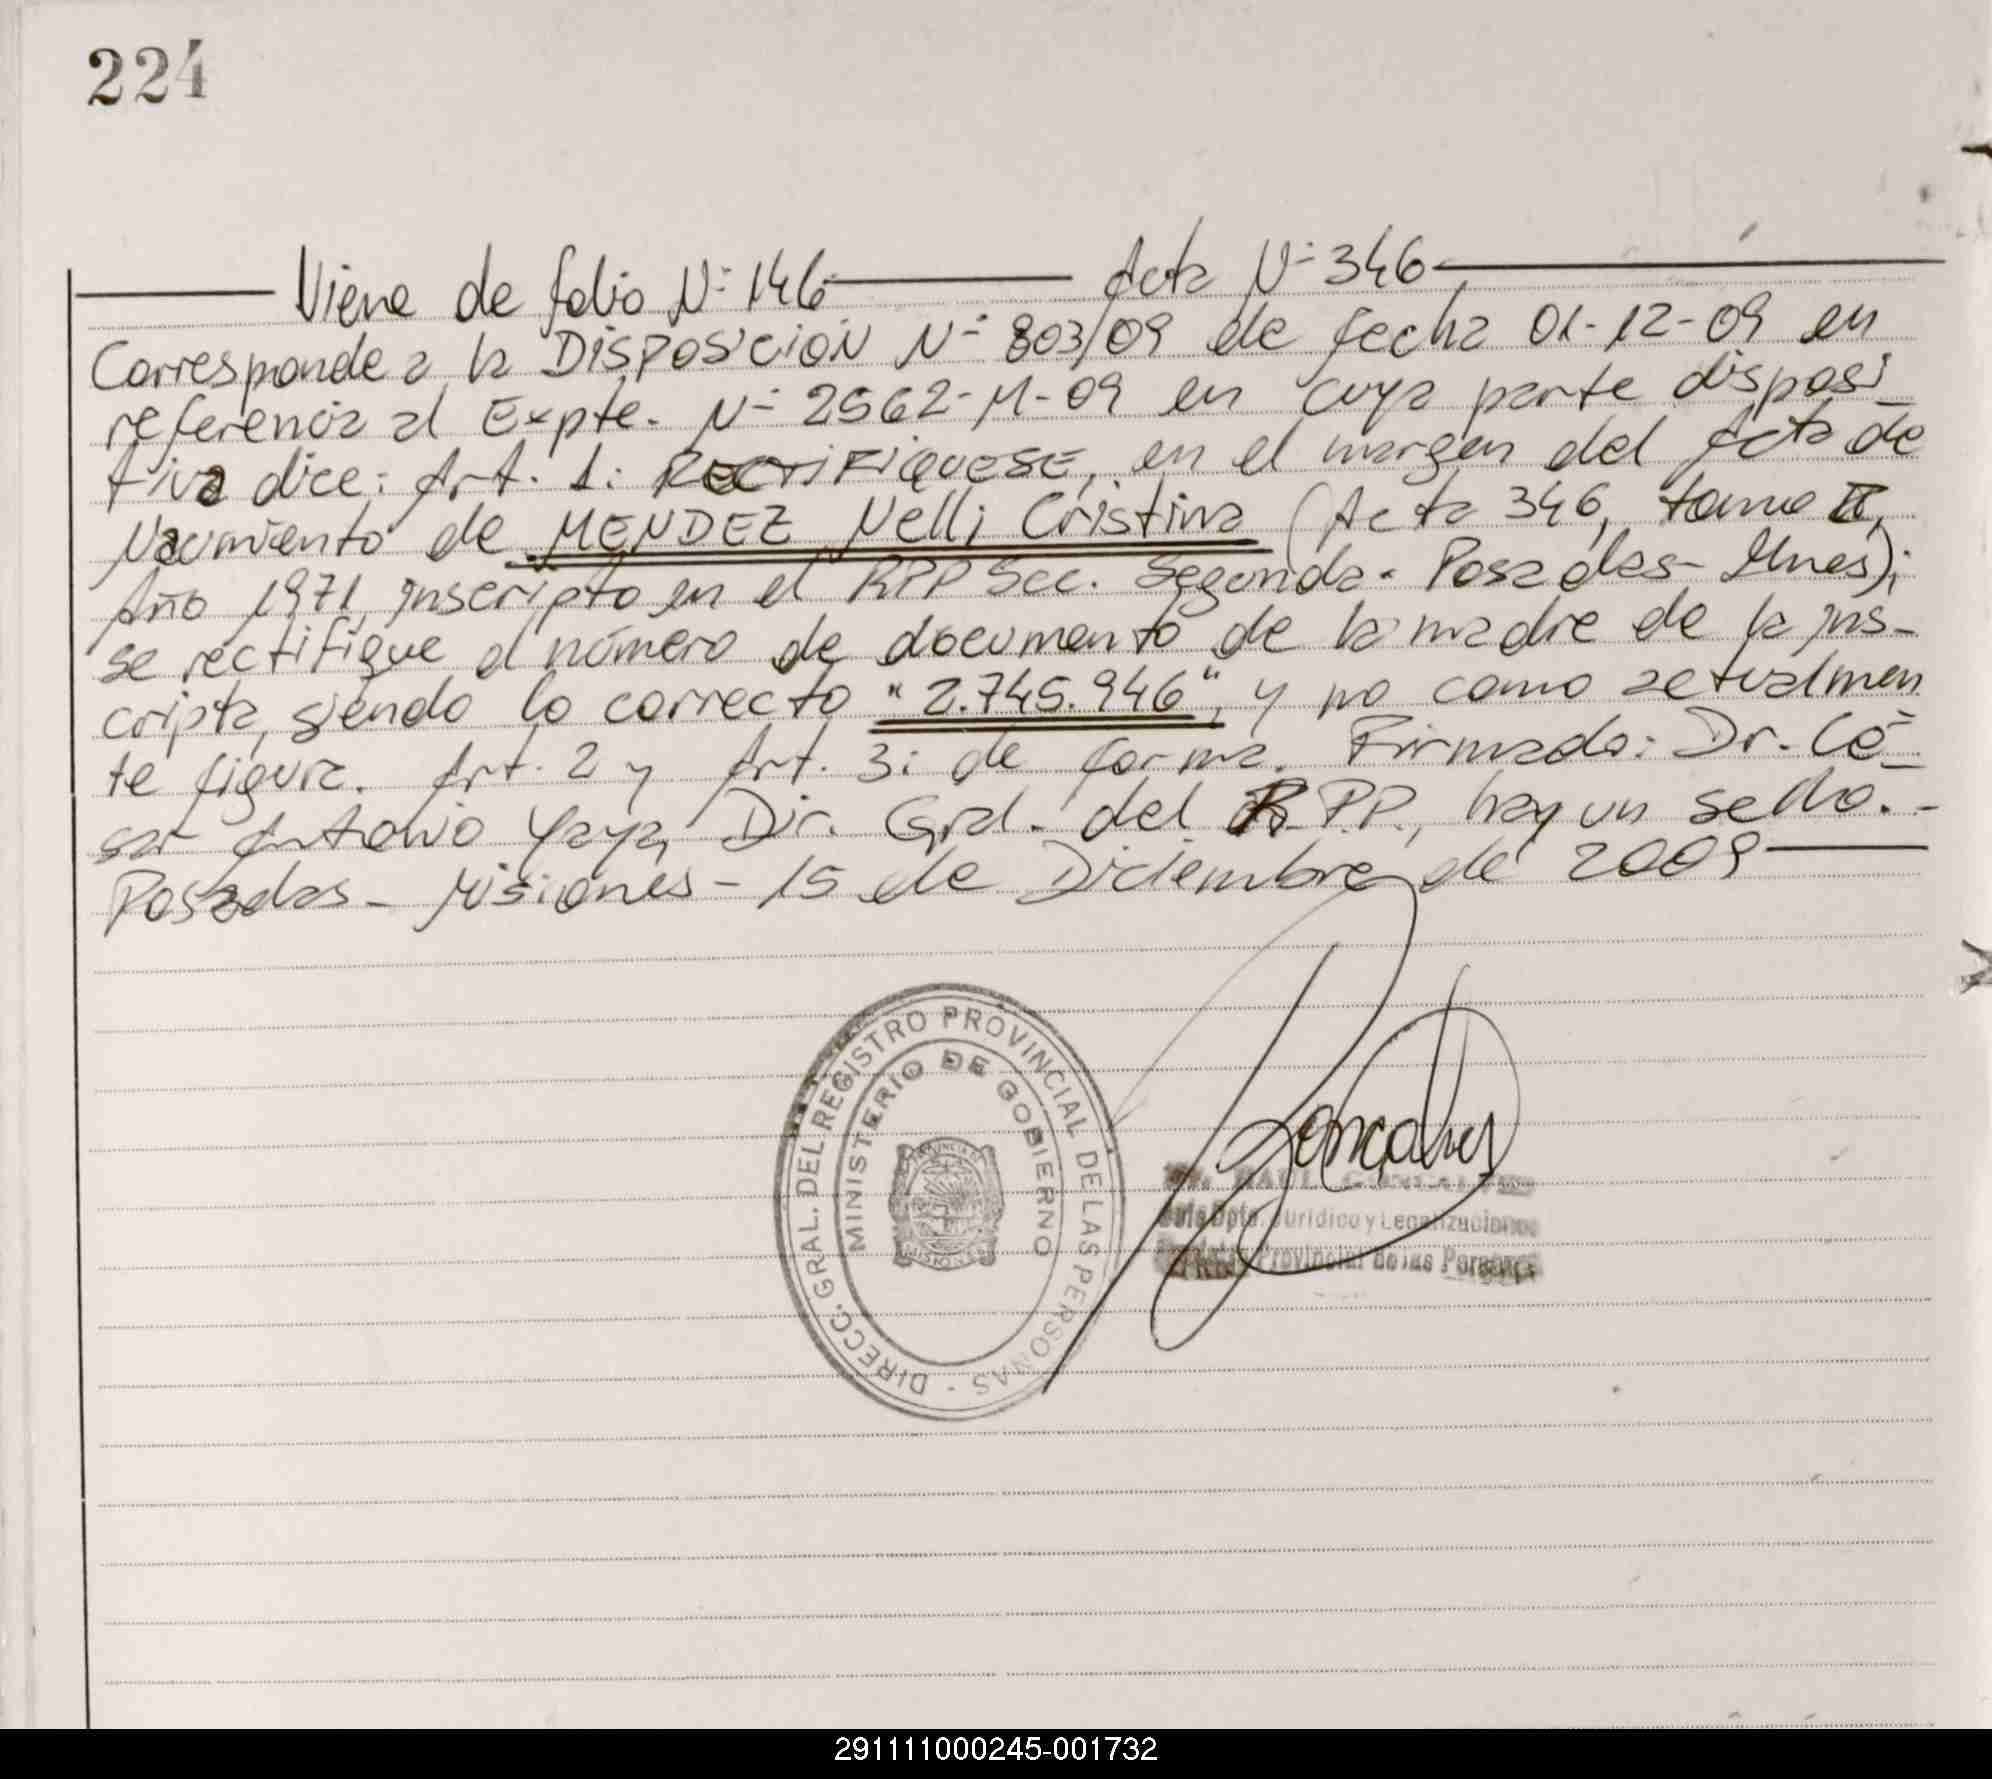 224
Viene de folio N° 146 Acta N° 346
Corresponde a la DISPOSICIÓN N° 803/09 de fecha 01-12-09 en
referencia al Expte. N° 2562-M-09 en cuya parte disposi_
tiva dice: Art. 1: RECTIFIQUESE, en el margen del Acta de
Nacimiento de MENDEZ Nelli Cristina (Acta 346, tomo II,
Año 1971, inscripto en el RPP Sec. Segunda. Posadas- Mnes);
se rectifique el número de documento de la madre de la ins-
cripta, siendo lo correcto "2.745.946", y no como actualmen
te figura. Art. 2 y Art. 3: de forma. Firmado: Dr. Cé_
sar Antonio Yaya, Dir. Gral. del R.P.P., hay un sello.-
Posadas - Misiones - 15 de Diciembre de 2009
DIRECC. GRAL. DEL REGISTRO PROVINCIAL DE LAS PERSONAS -
MINISTERIO DE GOBIERNO
PROVINCIA DE
MISIONES
RAUL
Jefe Dpto. Jurídico y Legalizaciones
Registro Provincial de las Personas
291111000245-001732